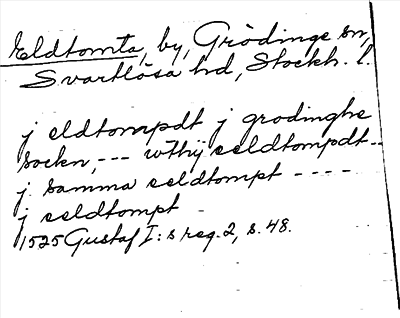 Eldtomta, by, Grödinge sn,
Svartlösa hd, Stockh. l.
j eldtompdt j grodinghe
sockn, --- wthij eeldtompdt --
j samma eeldtompt ----
j eeldtompt -
1525 Gustaf I:s reg. 2, s. 48.